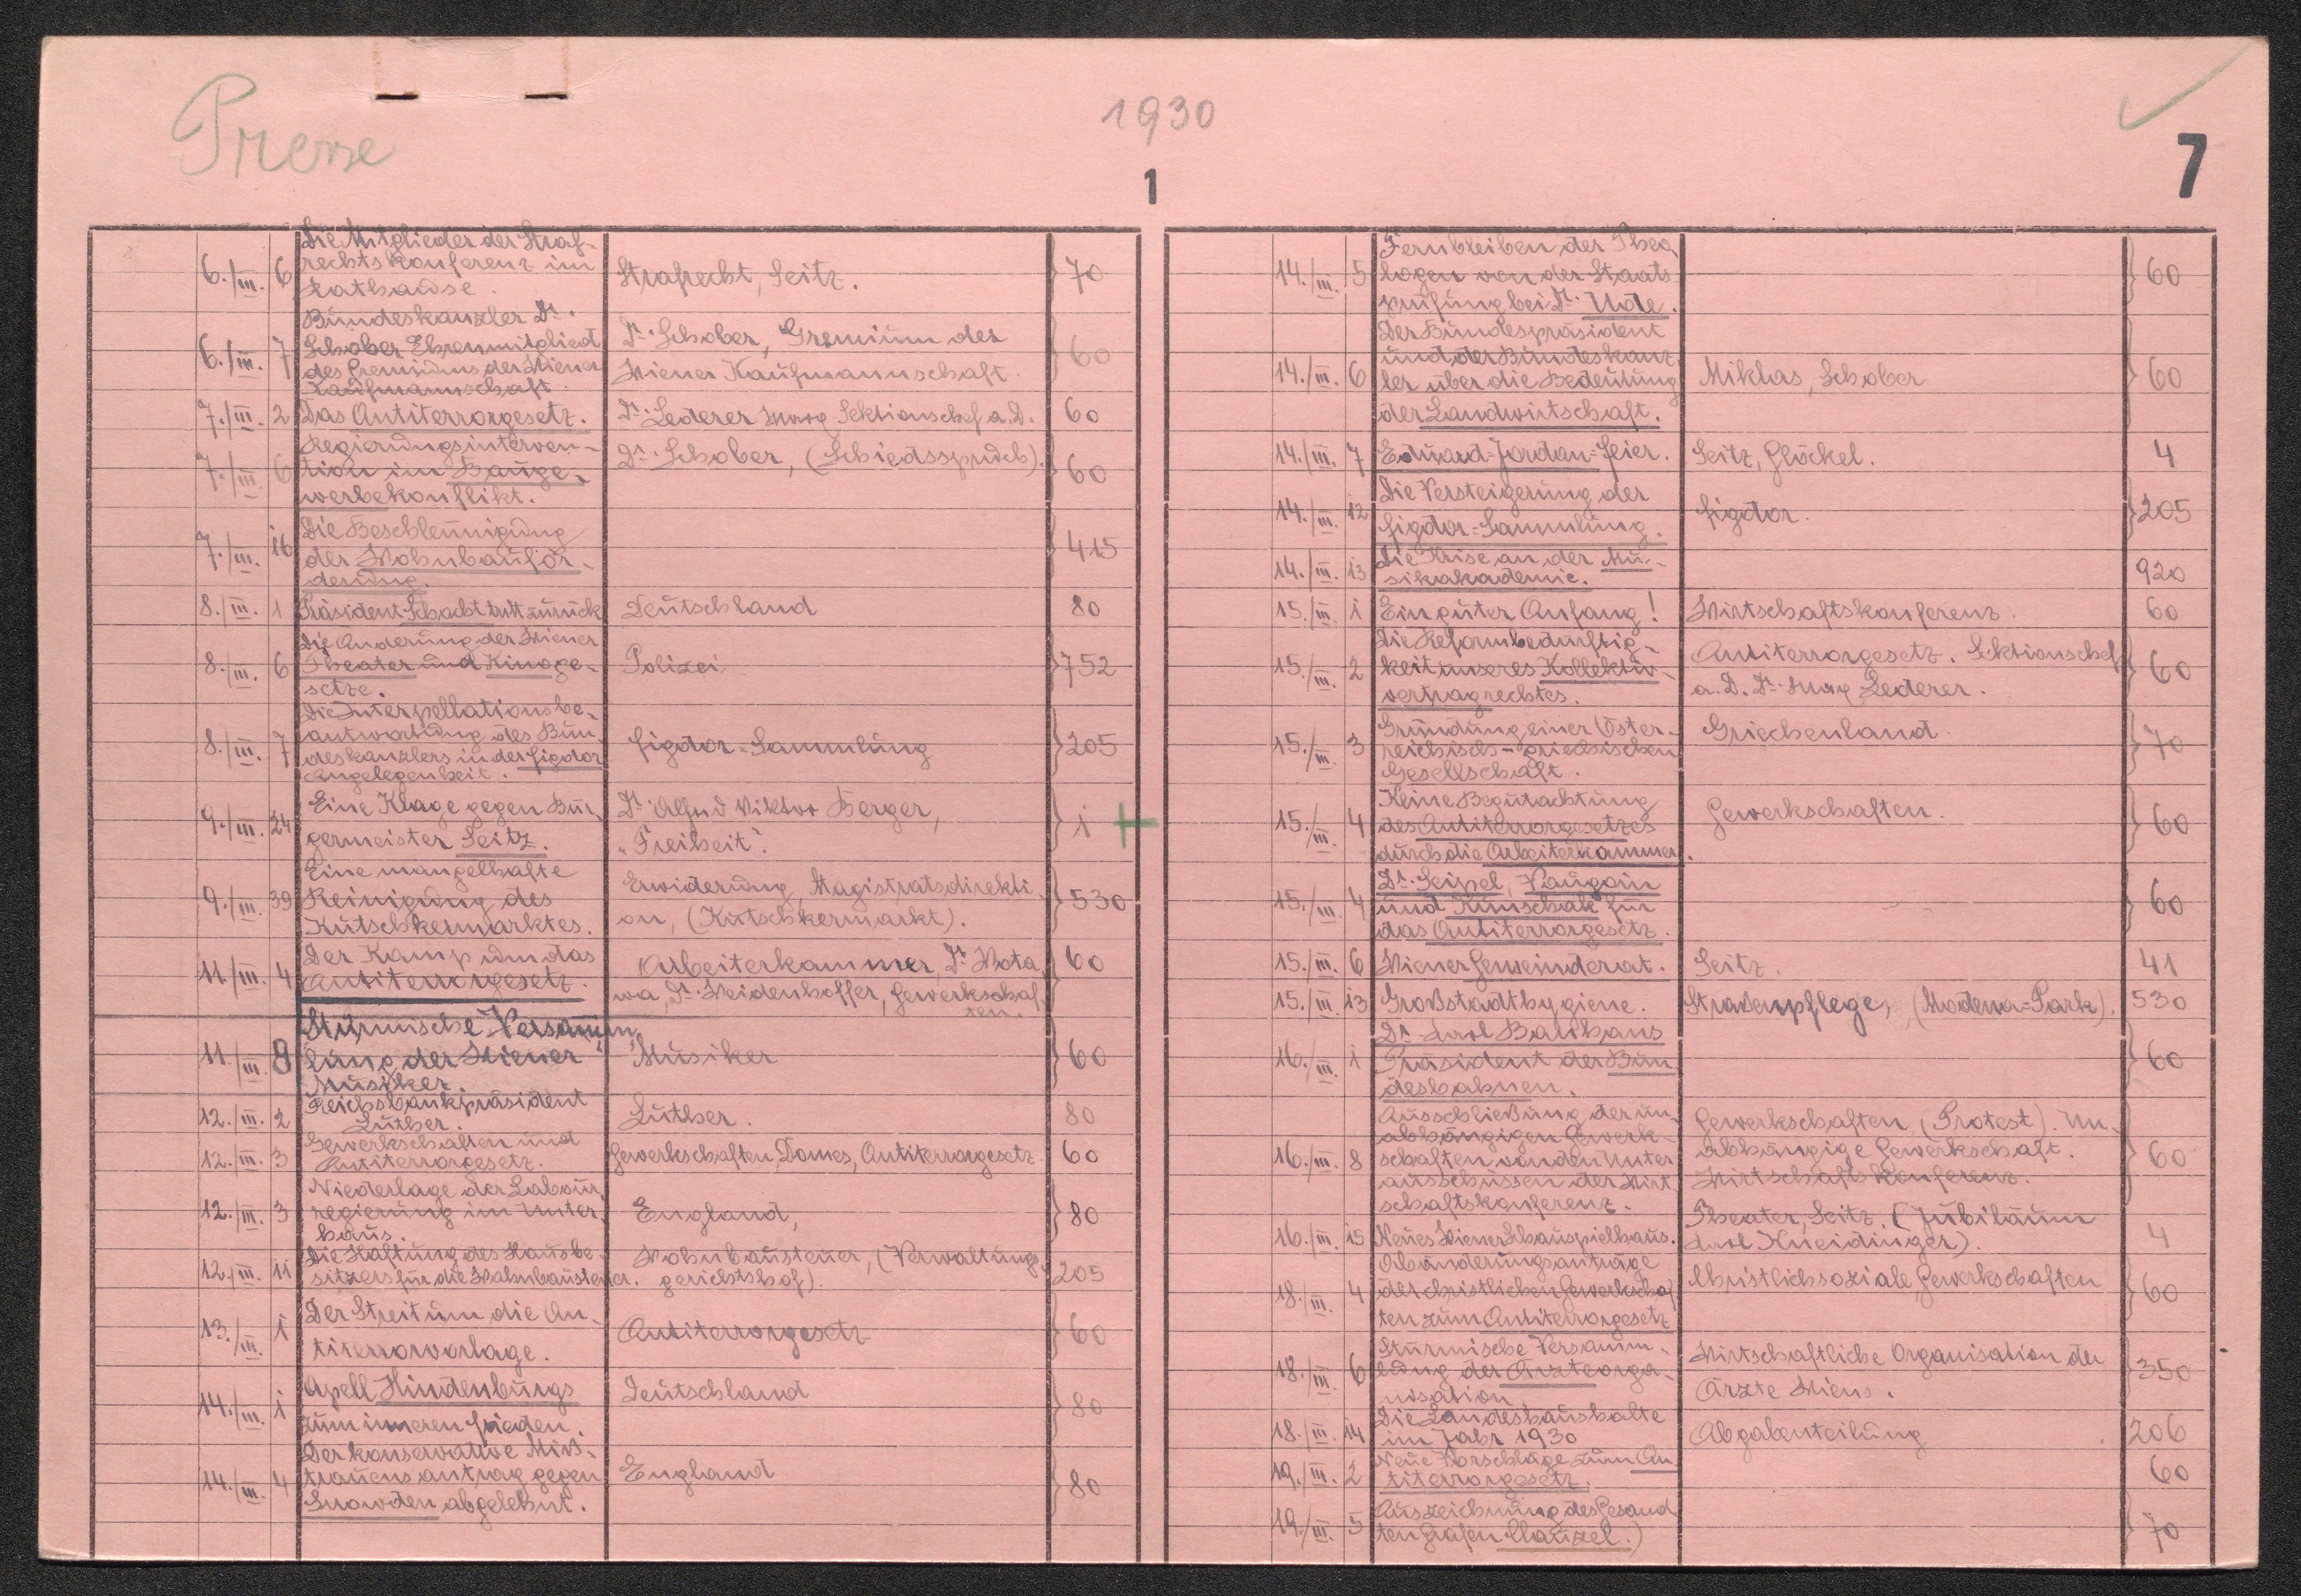 Presse
1930
7
1
6./III. 6 Die Mitglieder der Straf-
rechtskonferenz im
Rathause.
Strafrecht, Seitz. 70
6./III. 7 Bundeskanzler Dr.
Schober Ehrenmitglied
des Gremiums der Wiener
Kaufmannschaft.
Dr. Schober, Gremium der
Wiener Kaufmannschaft. 60
7./III. 2 Das Antiterrorgesetz. Dr. Lederer Max Sektionschef a.D. 60
7./III. 6 Regierungsinterven-
tion im Bauge-
werbekonflikt.
Dr. Schober, (Schiedsspruch). 60
7./III. 16 Die Beschleunigung
der Wohnbauför-
derung. 415
8./III. 1 Präsident Schacht tritt zurück Deutschland 80
8./III. 6 Die Änderung der Wiener
Theater und Kinoge-
setze.
Polizei 752
8./III. 7 Die Interpellationsbe-
antwortung des Bun-
deskanzlers in der Figdor
Angelegenheit.
Figdor=Sammlung 205
9./III. 24 Eine Klage gegen Bür-
germeister Seitz.
Dr. Alfred Viktor Berger,
"Freiheit". 1 +
9./III. 39 Eine mangelhafte
Reinigung des
Kutschkermarktes.
Erwiderung, Magistratsdirekti-
on, (Kutschkermarkt). 530
11./III. 4 Der Kampf um das
Antiterrorgesetz.
Arbeiterkammer, Dr. Wota
wa, Dr. Weidenhoffer, Gewerkschaf-
ten. 60
11./III. 8 Stürmische Versamm-
lung der Wiener
Musiker.
Musiker 60
12./III. 2 Reichsbankpräsident
Luther.
Luther. 80
12./III. 3 Gewerkschaften und
Antiterrorgesetz.
Gewerkschaften, Domes, Antiterrorgesetz. 60
12./III. 3 Niederlage der Labour
regierung im Unter-
haus.
England, 80
12./III. 11 Die Haftung des Hausbe-
sitzers für die Wohnbausteuer.
Wohnbausteuer, (Verwaltungs-
gerichtshof). 205
13./III. 1 Der Streit um die An-
titerrorvorlage.
Antiterrorgesetz 60
14./III. 1 Apell Hindenburgs
zum inneren Frieden.
Deutschland 80
14./III. 4 Der konservative Miß-
trauensantrag gegen
Snowden abgelehnt.
England 80
14./III. 5 Fernbleiben der Theo-
logen von der Staats-
prüfung bei Dr. Ude. 60
14./III. 6 Der Bundespräsident
und der Bundeskanz-
ler über die Bedeutung
der Landwirtschaft.
Miklas, Schober 60
14./III. 7 Eduard=Jordan=Feier. Seitz, Glöckel. 4
14./III. 12 Die Versteigerung der
Figdor=Sammlung.
Figdor. 205
14./III. 13 Die Krise an der Mu-
sikakademie. 920
15./III. 1 Ein guter Anfang! Wirtschaftskonferenz. 60
15./III. 2 Die Reformbedürftig-
keit unseres Kollektiv-
vertragrechtes.
Antiterrorgesetz. Sektionschef
a.D. Dr. Max Lederer. 60
15./III. 3 Gründung einer Öster-
reichisch=griechischen
Gesellschaft.
Griechenland. 70
15./III. 4 Keine Begutachtung
des Antiterrorgesetzes
durch die Arbeiterkammer.
Gewerkschaften. 60
15./III. 4 Dr. Seipel, Vaugoin
und Kunschak für
das Antiterrorgesetz. 60
15./III. 6 Wiener Gemeinderat. Seitz. 41
15./III. 13 Großstadthygiene. Straßenpflege, (Modena=Park). 530
16./III. 1 Dr. Karl Banhans
Präsident der Bun-
desbahnen. 60
16./III. 8 Ausschließung der un-
abhängigen Gewerk-
schaften von den Unter
ausschüssen der Wirt-
schaftskonferenz.
Gewerkschaften (Protest). Un-
abhängige Gewerkschaft.
Wirtschaftskonferenz. 60
16./III. 15 Neues Wiener Schauspielhaus. Theater, Seitz. (Jubiläum
Karl Kneidinger). 4
18./III. 4 Abänderungsanträge
der christlichen Gewerkschaf-
ten zum Antiterrorgesetz
Christlichsoziale, Gewerkschaften 60
18./III. 6 Stürmische Versamm-
lung der Ärzteorga-
nisation
Wirtschaftliche Organisation der
Ärzte Wiens. 350
18./III. 14 Die Landeshaushalte
im Jahr 1930
Abgabenteilung 206
19./III. 2 Neue Vorschläge zum An-
titerrorgesetz. 60
19./III. 5 Auszeichnung des Gesand
ten Grafen Clauzel.) 70